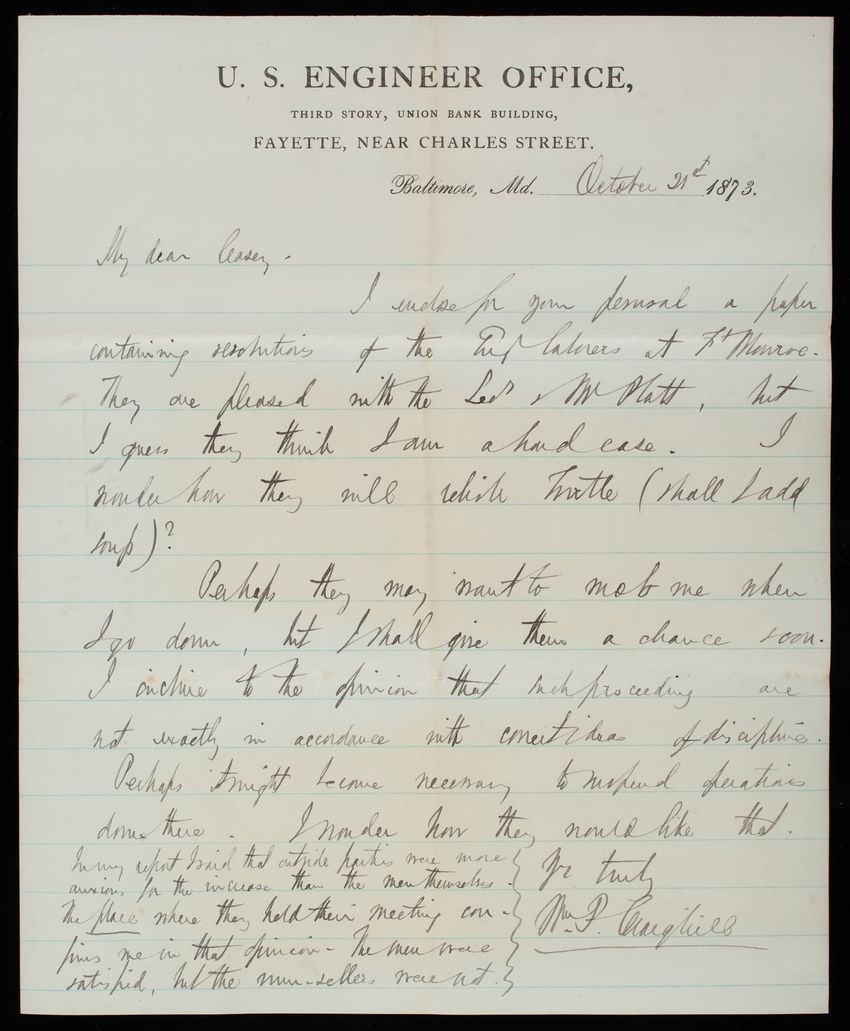 U. S. ENGINEER OFFICE,
THIRD STORY, UNION BANK BUILDING,
FAYETTE, NEAR CHARLES STREET.
Baltimore, Md. October 21st 1873.
My dear Casey -
I enclose for your perusal a paper
containing resolutions of the laborers at Ft Monroe.
They are pleased with the Secy & Mr Platt, but
I guess they think I am a hard case. I
wonder how they will relish Turtle (shall I add
soup)?
Perhaps they may want to mob me when
I go down, but I shall give them a chance soon.
I incline to the opinion that such proceeding are
not exactly in accordance with correct ideas of discipline.
Perhaps it might become necessary to suspend operations
down there. I wonder how they would like that.
In my report I said that outside parties were more
anxious for the increase than the men themselves.
The place where they held their meeting con-
firms me in that opinion - The men were
satisfied, but the rum-sellers were not.
Yr truly
Wm. P. Craighill